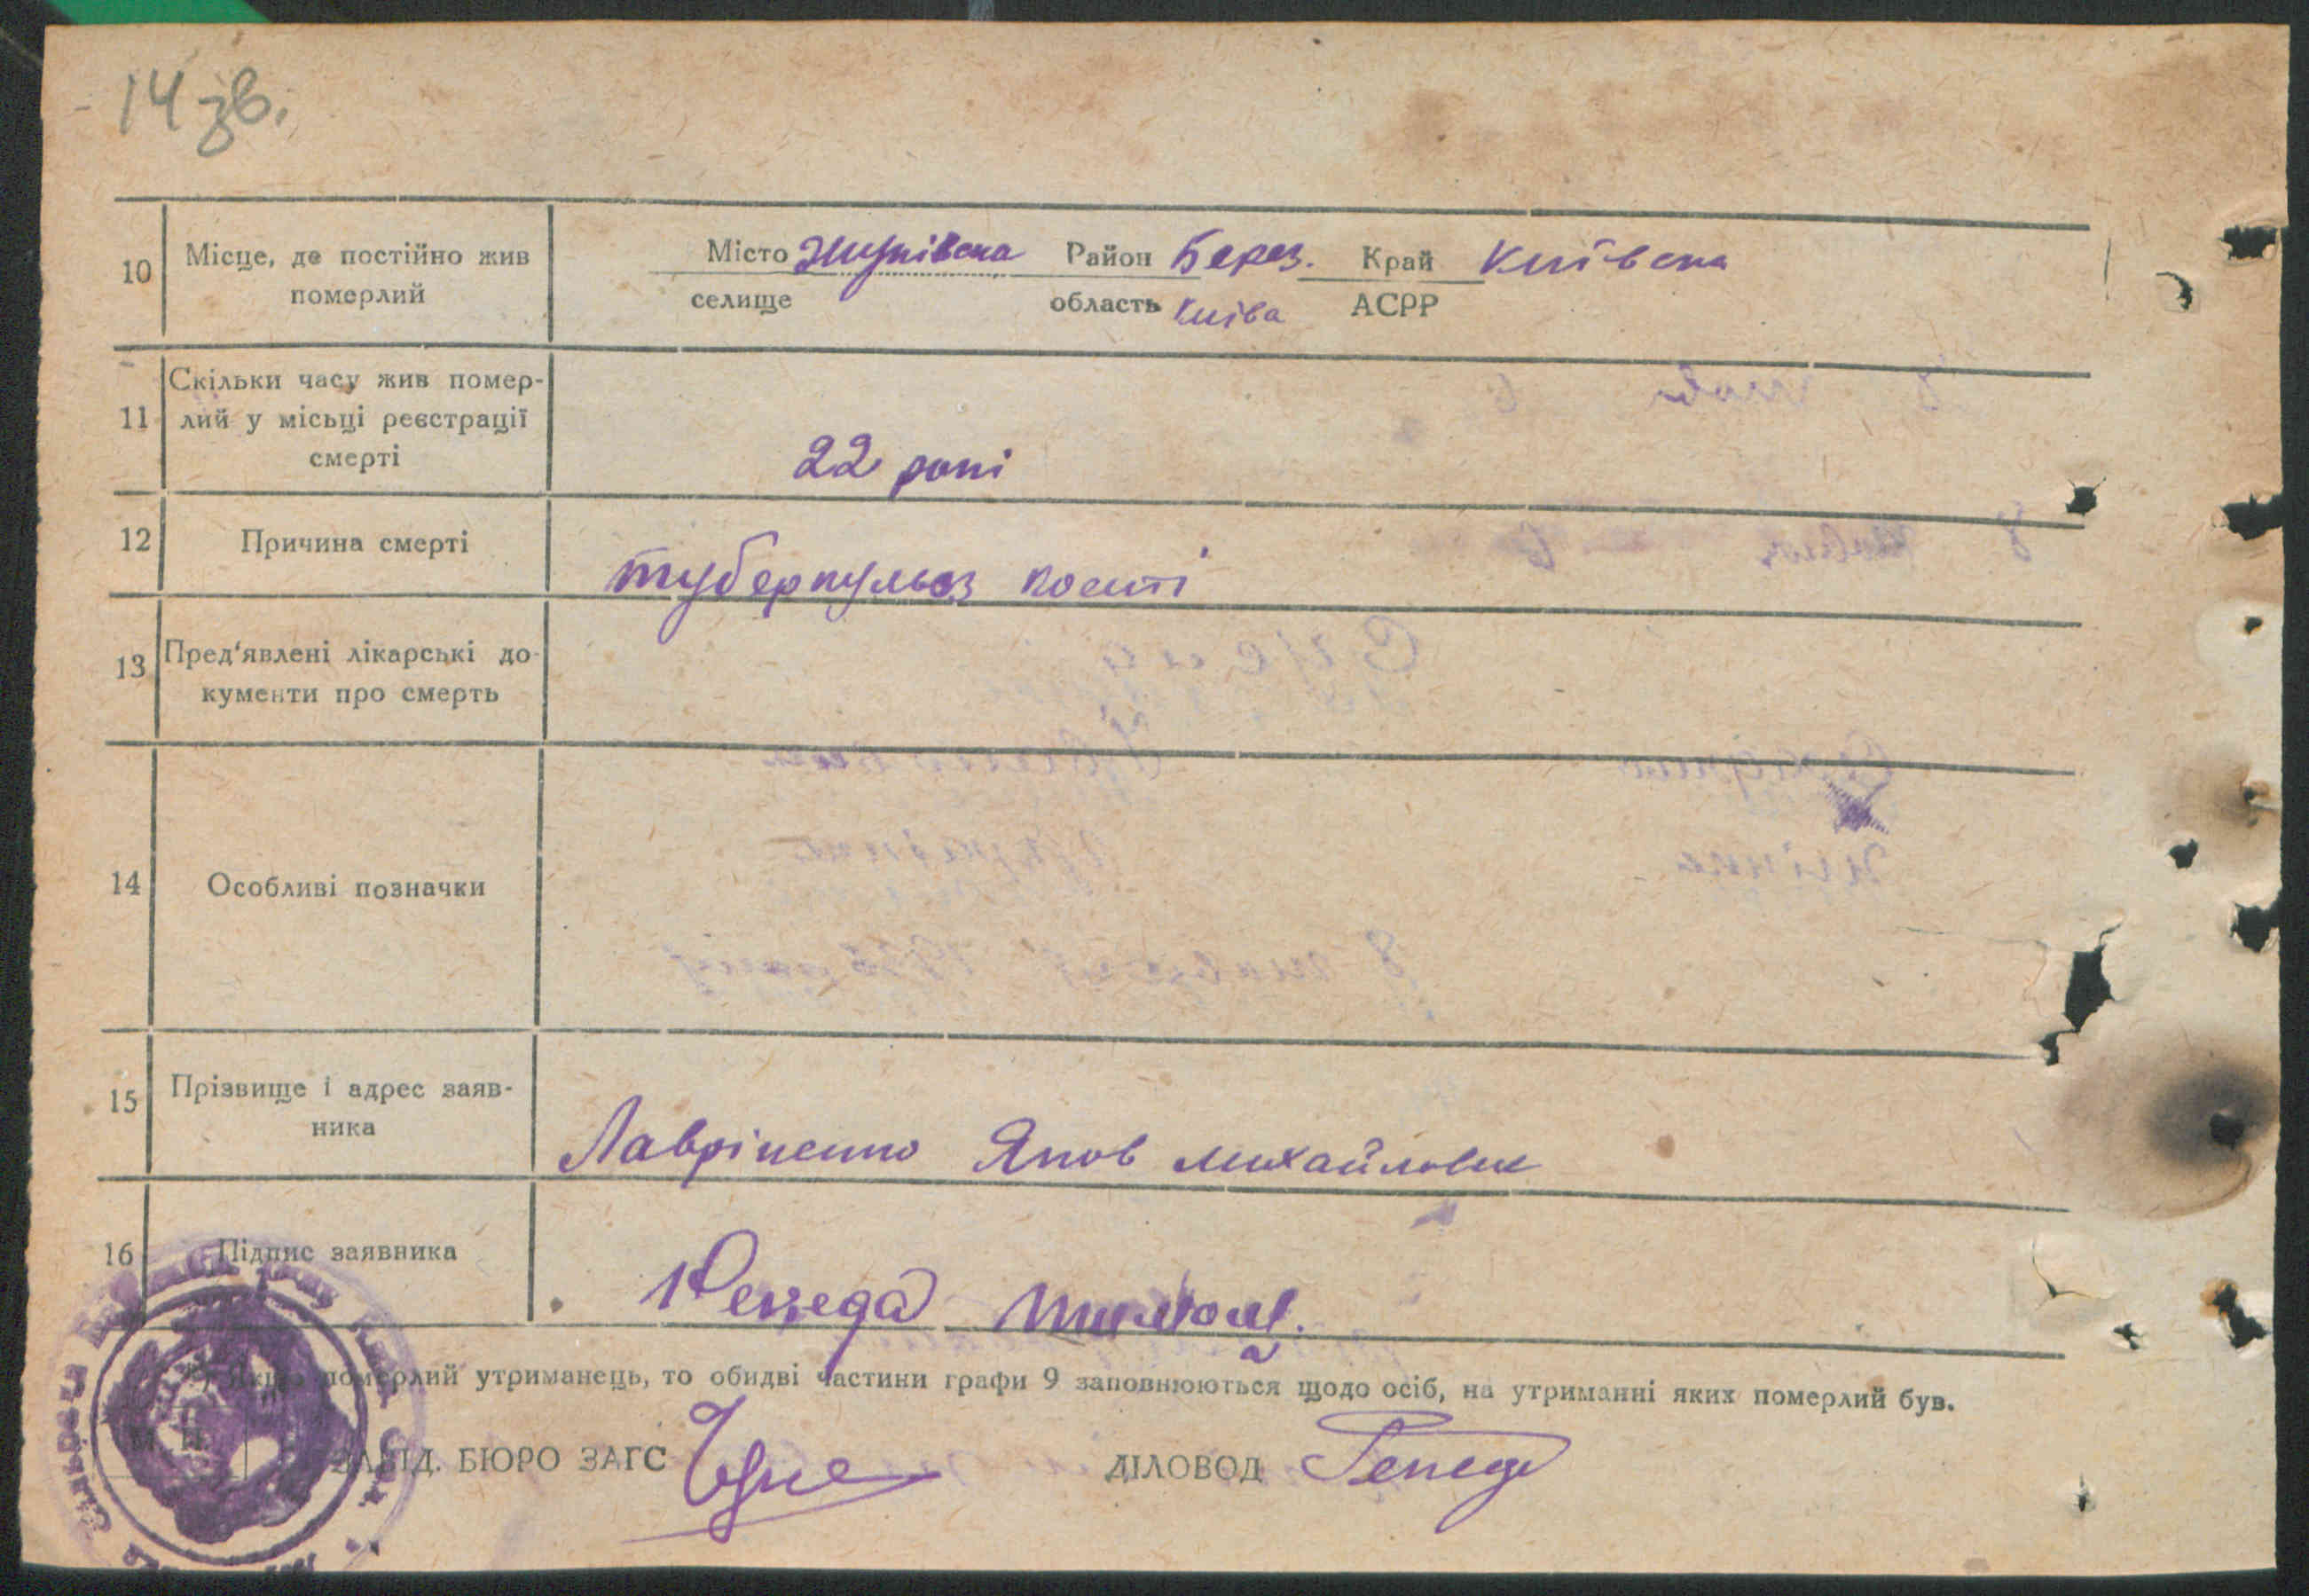 14 зв.
10 Місце, де постійно жив померлий
Місто Жуківска Район Берез. Край Київска
селище область Київа АСРР
11 Скільки часу жив помер-
лий у місьці реєстрації
смерті
22 рокі
12 Причина смерті
туберкульоз кості
13 Пред'явлені лікарські до-
кументи про смерть
14 Особливі позначки
15 Прізвище і адрес заяв-
ника
Лавріненко Яков михайлович
16 Підпис заявника
*) Якщо померлий утриманець, то обидві частини графи 9 заповнюються щодо осіб, на утриманні яких померлий був.
М. П.
ЗАВІД. БЮРО ЗАГС ДІЛОВОД